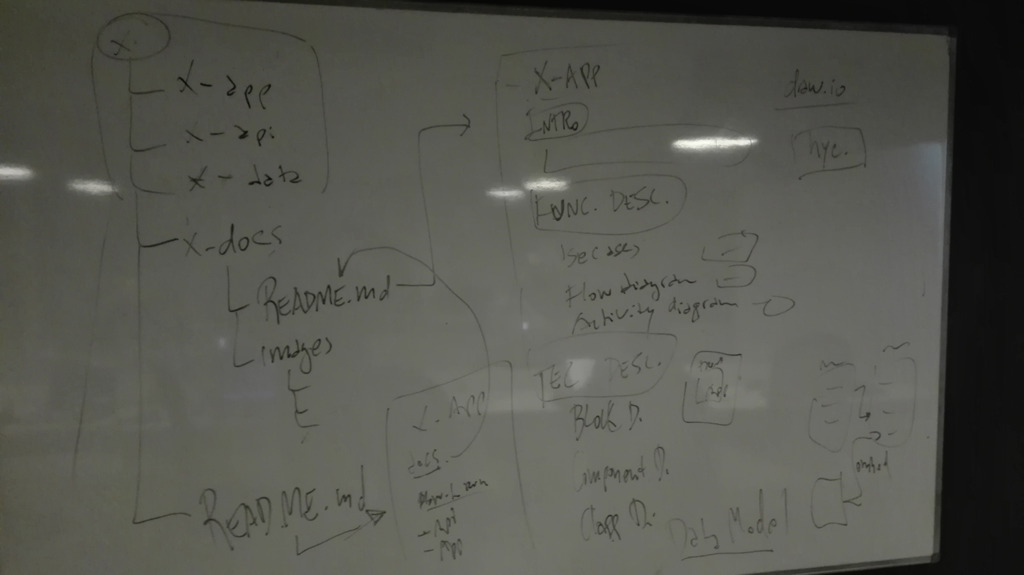 X
X-app
X-api
X-data
X-docs
README.md
images
README.md
X-APP
docs.
- Api
- App
X-APP
INTRO
FUNC. DESC.
Usecases
Flow diagram
Activity diagram
TEC DESC.
Block D.
Component D.
Class D.
Data Model
draw.io
embed